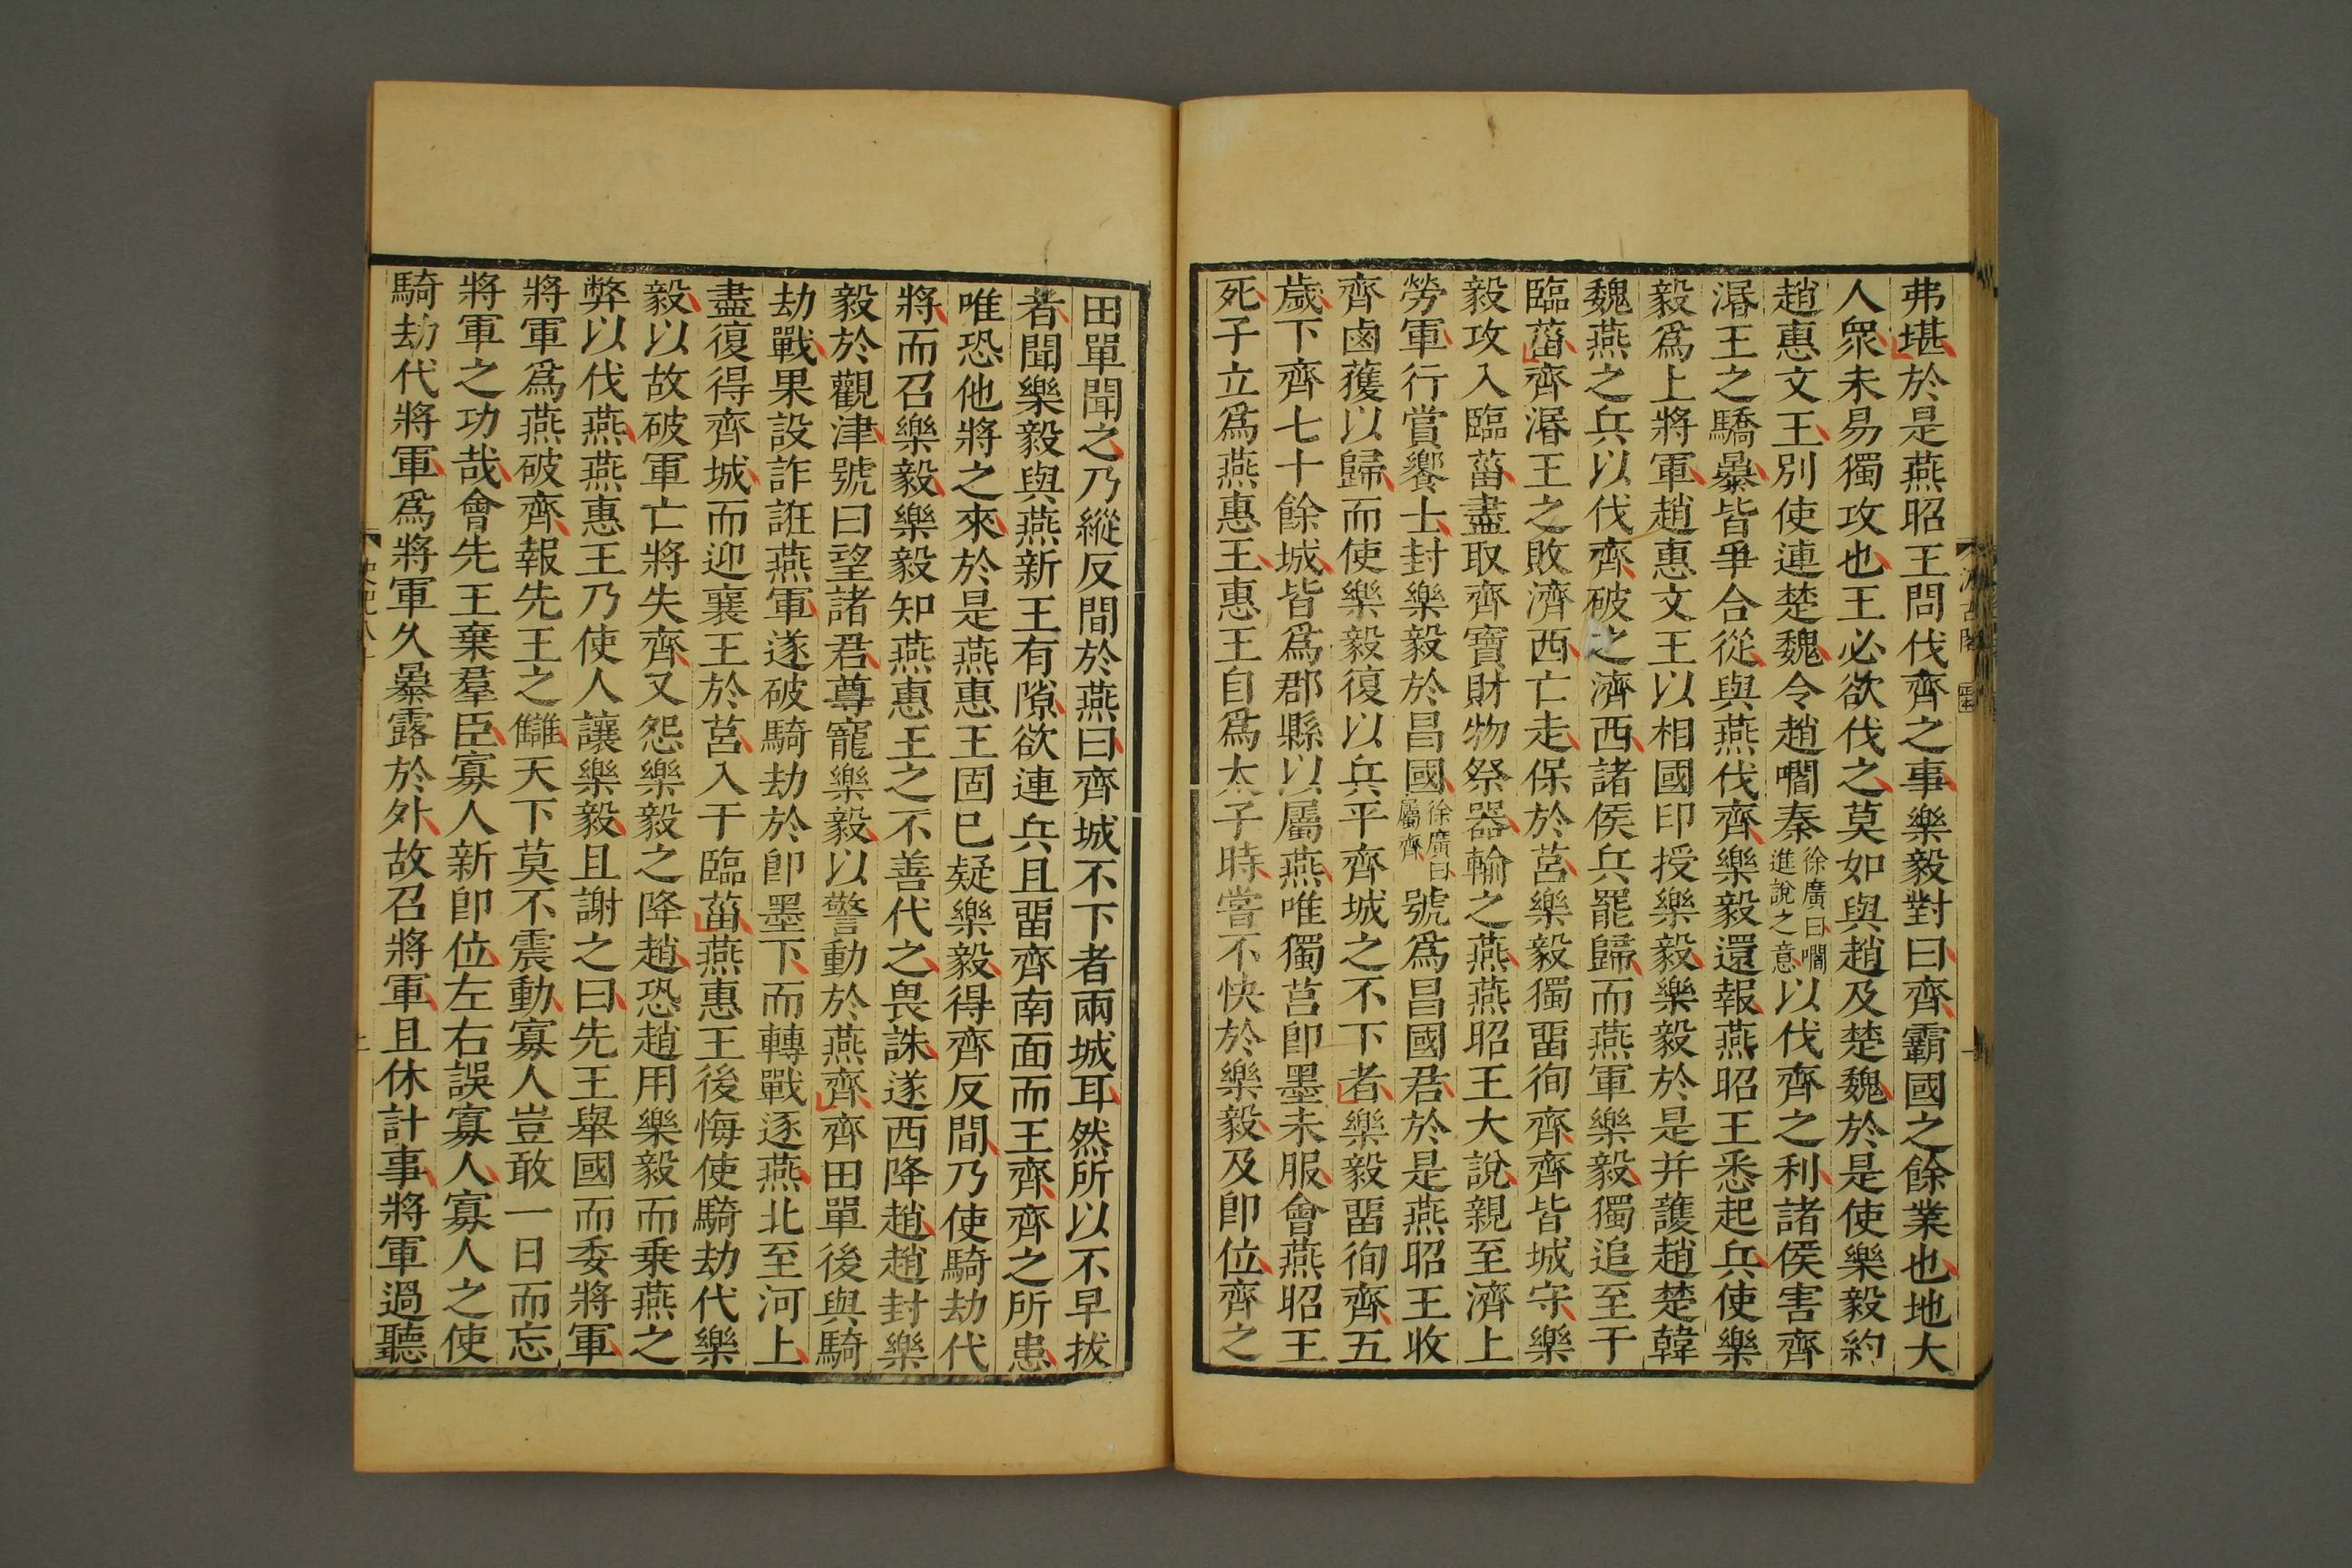 弗堪於是燕昭王問伐齊之事樂毅對曰齊霸國之餘業也地大
人衆未易獨攻也王必欲伐之莫如與趙及楚魏於是使樂毅約
趙惠文王別使連楚魏令趙嚪秦徐廣曰嚪進說之意以伐齊之利諸侯害齊
湣王之驕暴皆爭合從與燕伐齊樂毅還報燕昭王悉起兵使樂
毅爲上將軍趙惠文王以相國印授樂毅樂毅於是并護趙楚韓
魏燕之兵以伐齊破之濟西諸侯兵罷歸而燕軍樂毅獨追至于
臨菑齊湣王之敗濟西亡走保於莒樂毅獨畱徇齊齊皆城守樂
毅攻入臨菑盡取齊寶財物祭器輸之燕燕昭王大說親至濟上
勞軍行賞饗士封樂毅於昌國徐廣曰屬齊號爲昌國君於是燕昭王收
齊鹵獲以歸而使樂毅復以兵平齊城之不下者樂毅畱徇齊五
歲下齊七十餘城皆爲郡縣以屬燕唯獨莒卽墨未服會燕昭王
死子立爲燕惠王惠王自爲太子時嘗不快於樂毅及卽位齊之
田單聞之乃縱反間於燕曰齊城不下者兩城耳然所以不早拔
者聞樂毅與燕新王有隙欲連兵且畱齊南面而王齊齊之所患
唯恐他將之來於是燕惠王固已疑樂毅得齊反間乃使騎劫代
將而召樂毅樂毅知燕惠王之不善代之畏誅遂西降趙趙封樂
毅於觀津號曰望諸君尊寵樂毅以警動於燕齊齊田單後與騎
劫戰果設詐誑燕軍遂破騎劫於卽墨下而轉戰逐燕北至河上
盡復得齊城而迎襄王於莒入于臨菑燕惠王後悔使騎劫代樂
毅以故破軍亡將失齊又怨樂毅之降趙恐趙用樂毅而乗燕之
弊以伐燕燕惠王乃使人讓樂毅且謝之曰先王舉國而委將軍
將軍爲燕破齊報先王之讎天下莫不震動寡人豈敢一日而忘
將軍之功哉會先王棄羣臣寡人新卽位左右誤寡人寡人之使
騎劫代將軍爲將軍久暴露於外故召將軍且休計事將軍過聽